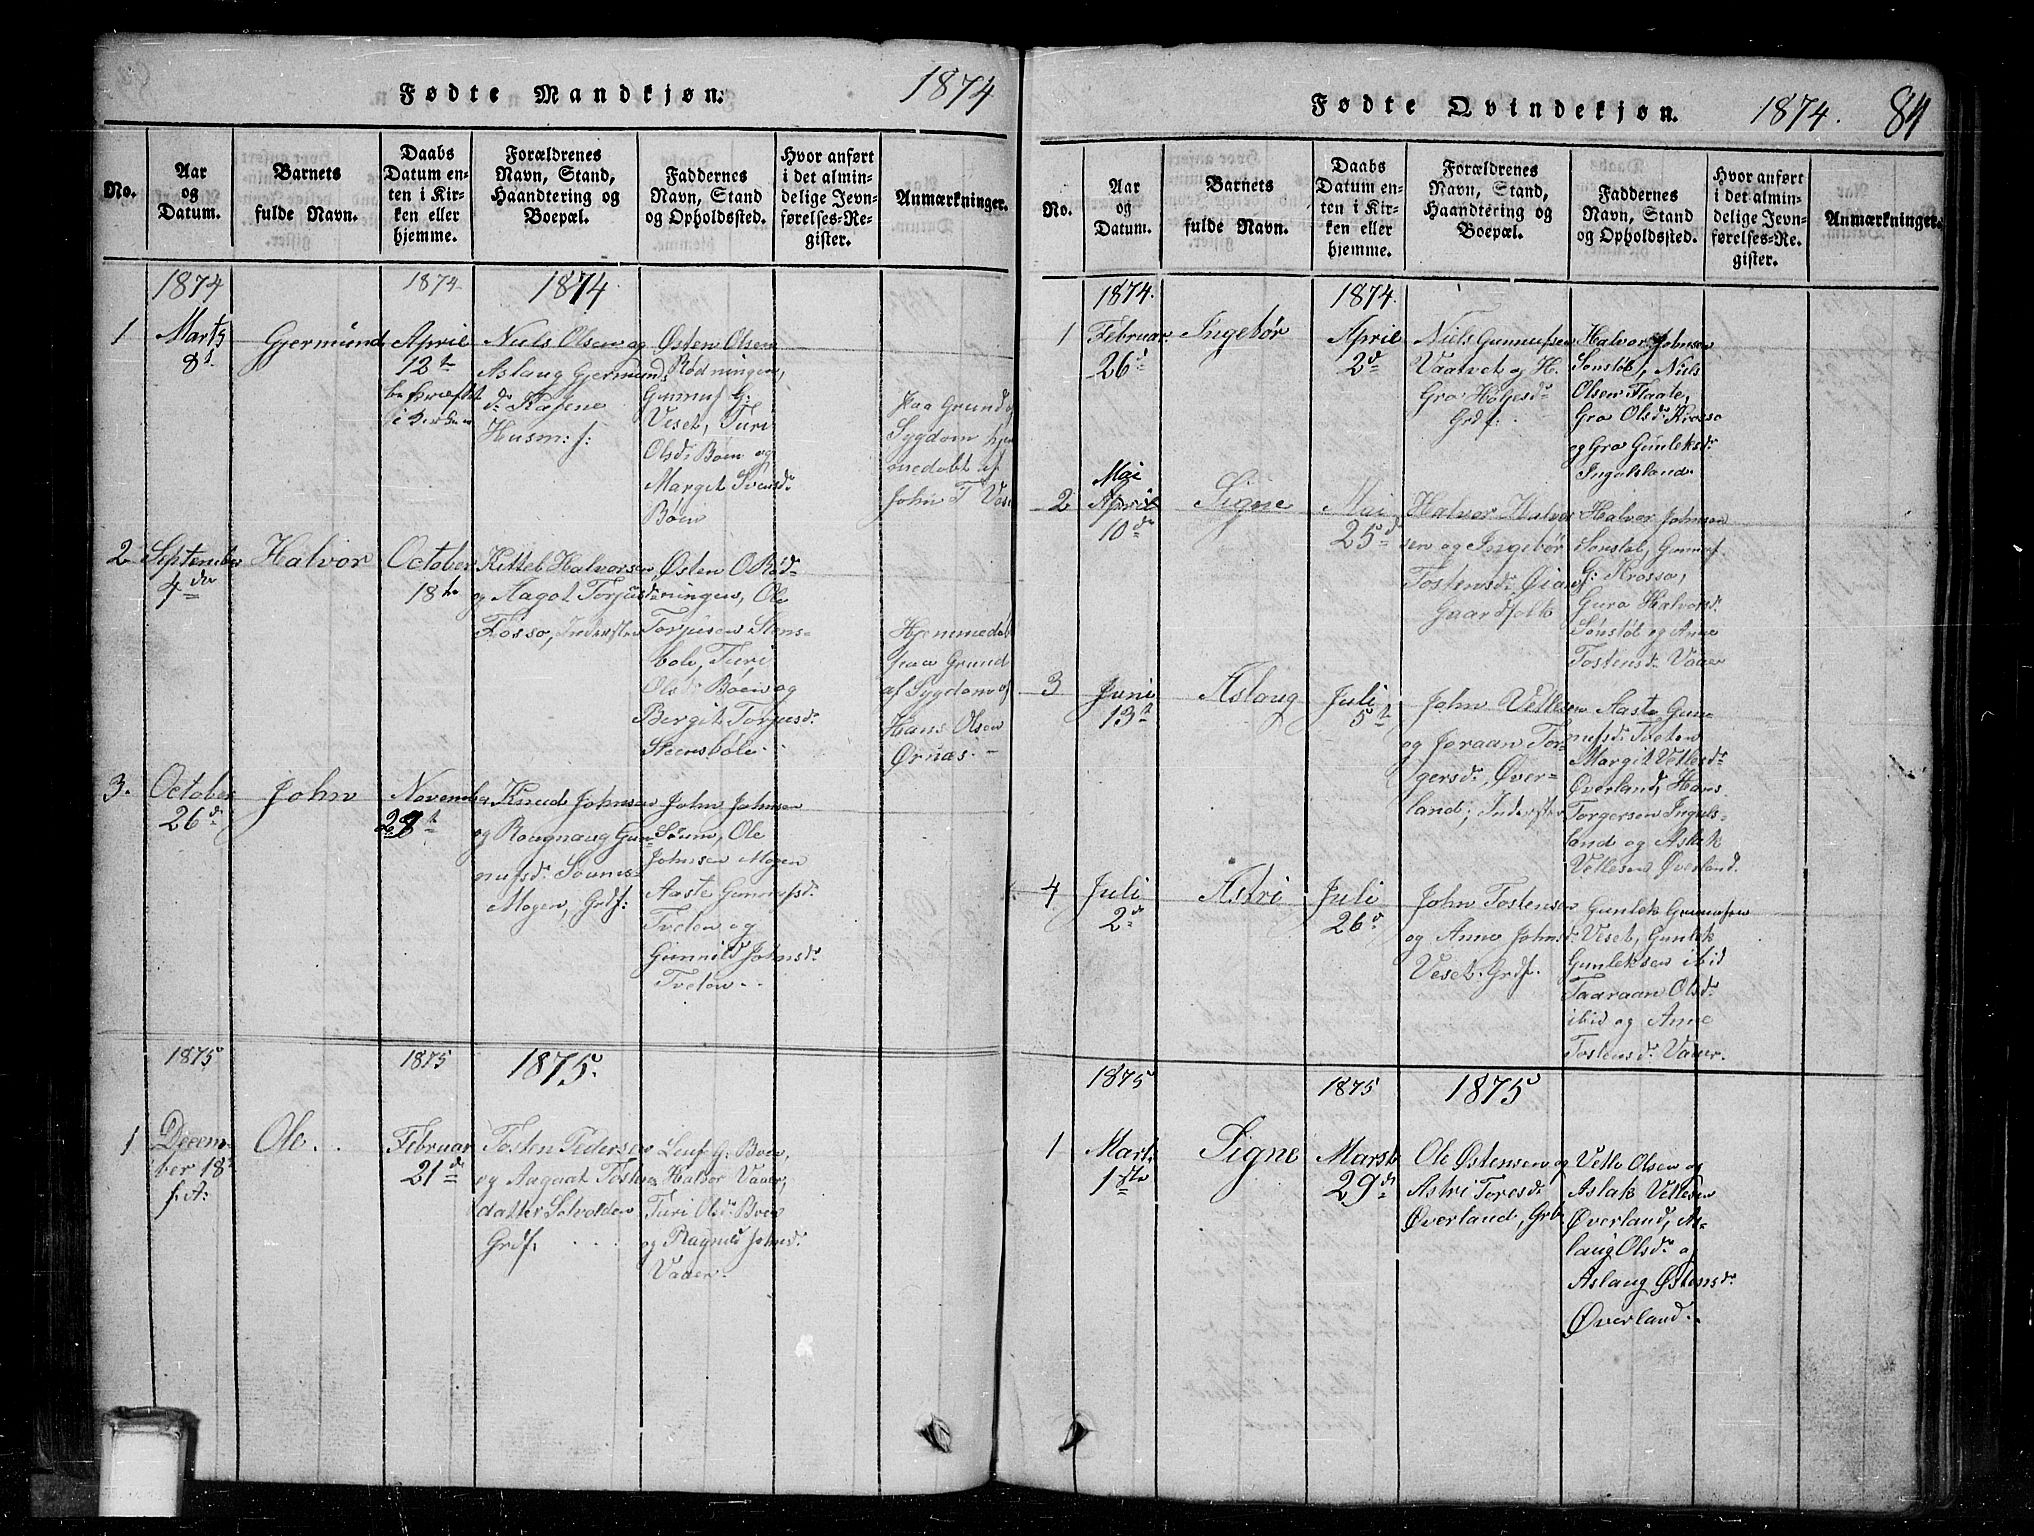 Fødte Mandkjøn. 1874
No.
Aar
og
Datum.
Barnets
fulde Navn.
Daabs
Datum en-
ten i Kir-
ken eller
hjemme.
Forældrenes
Navn, Stand,
Haandtering og
Boepæl.
Faddernes
Navn, Stand
og Opholdssted.
Hvor anført
i det almin-
delige Jevn-
førelses-Re-
gister.
Anmærkninger.
1874 1874 1874
1
Marts
8d
Gjermund
April
12te
bekræftet
i Kirken
Niels Olsen og
Aslaug Gjermunds
dr
Husm: f:
Østen Olsen
Rødningen,
Gunnuf G:
Veset, Turi
Olsdr Boen og
Margit Svensdr
Bøen
Paa Grund
Sygdom
af
John T.
2
September
4de
Halvor
October
18te
Kittel Halvorsen
og Aagot Torjusdr
Fosso, Inderster
Østen O Rød-
ningen, Ole
Torjusen Stens-
bole, Turi
Olsdr Bøen og
Bergit Torjusdr
Steensbole.
paa Grund
af Sygdom af
Hans Olsen
Ørnæs. -
3.
October
26d
John
November
Knud Johnsen
og Rougnaug Gun-
nufsdr
Mogen, Grdf:
John Johnsen
Ole
Johnsen Mogen
Aaste Gunnufsdr
Tveten og
Gunnild Johnsdr
Tveten..
1875 1875 1875.
1
Decem-
ber 18d
f. A:
Ole..
Februar
21d
Tosten Pedersen
og Aagaat Tostens
datter
Grdf.
Leuf G: Boen,
Halvor Vaaer,
Turi Olsdr Boen
og Ragnild Johnsdr
Vaaer.
Fødte Qvindekjøn. 1874. 84
No.
Aar
og
Datum.
Barnets
fulde Navn.
Daabs
Datum en-
ten i Kir-
ken eller
hjemme.
Forældrenes
Navn, Stand,
Haandtering og
Boepæl.
Faddernes
Navn, Stand
og Opholdssted.
Hvor anført
i det almin-
delige Jevn-
førelses-Re-
gister.
Anmærkninger.
1874. 1874.
1
Februar
26d
Ingebør
April
2d
Niels Gunnufsen
Vaatvet og H.
Gro Holgesdr
Grdf.
Halvor Johnsen
Sønstøb, Niels
Olsen Flaate,
Gro Olsdr Krosso
og Gro Gunleksdr
Ingulsland
2
Mai
April
10de
Signe
Mai
25d
Halvor Halvor
sen og Ingebør
Tostensdr Øian
Gaardfolk
Halvor Johnsen
Sønstøb, Gunnuf
G: Krosso,
Guro Halvorsdr
Sønstøb og Anne
Tostensdr Vaaer
3
Juni
13t
Aslaug
Juli
5t
John Vetlesen
og Joraan Tor-
gersdr, Over-
land; Inderster
Aaste Gun-
nufsdr Tveten
Margit Vetlesdr
Øverland, Hans
Torgersen Inguls-
land og Aslak
Vetlesen Øverland.
4
Juli
2d
Astri
Juli
26d
John Tostensen
og Anne Johnsdr
Veset. Grdf.
Gunlek Gunnufsen
Veset, Gunlek
Gunleksen ibid
Taaraan Olsdr
ibid og Anne
Tostensdr Vaaer.
1875 1875 1875
1
Marts
1ste
Signe
Marts
29d
Ole Østensen og
Astri Toresdr
Øverland, Grb.
Vetle Olsen og
Aslak Vetlesen
Øverland, As-
laug Olsdr og
Aslaug Østensdr
Øverland..